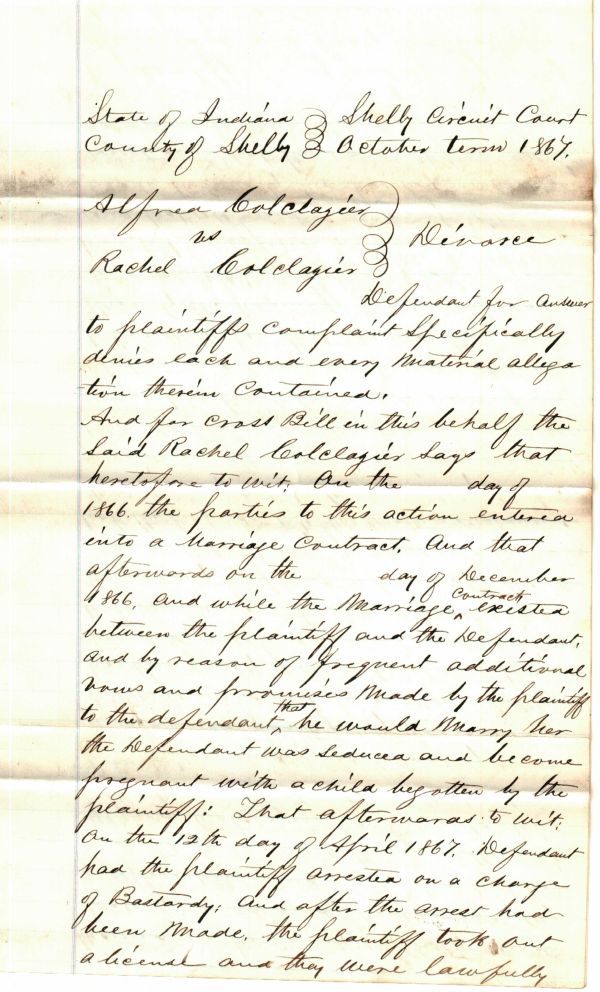 State of Indiana Shelby Circuit Court
County of Shelby October term 1867.
Alfred Colclagier
vs Divorce
Rachel Colclagier
Defendant for answer
to plaintiffs complaint Specifically
denies each and every Material allega
tion therein Contained.
And for Cross Bill in this behalf the
Said Rachel Colclagier Says that
heretofore to wit. On the day of
1866. the parties to this action entered
into a Marriage Contract. And that
afterwards on the day of December
1866, and while the Marriage Contract existed
between the plaintiff and the Defendant,
and by reason of frequent additional
vows and promises Made by the plaintiff
to the defendant that he would Marry her
the Defendant was seduced and become
pregnant with a child begotten by the
plaintiff: That afterwards to wit:
On the 12th day of April 1867. Defendant
had the plaintiff arrested on a charge
of Bastardy; And after the arrest had
been Made, the plaintiff took out
a license and they were lawfully